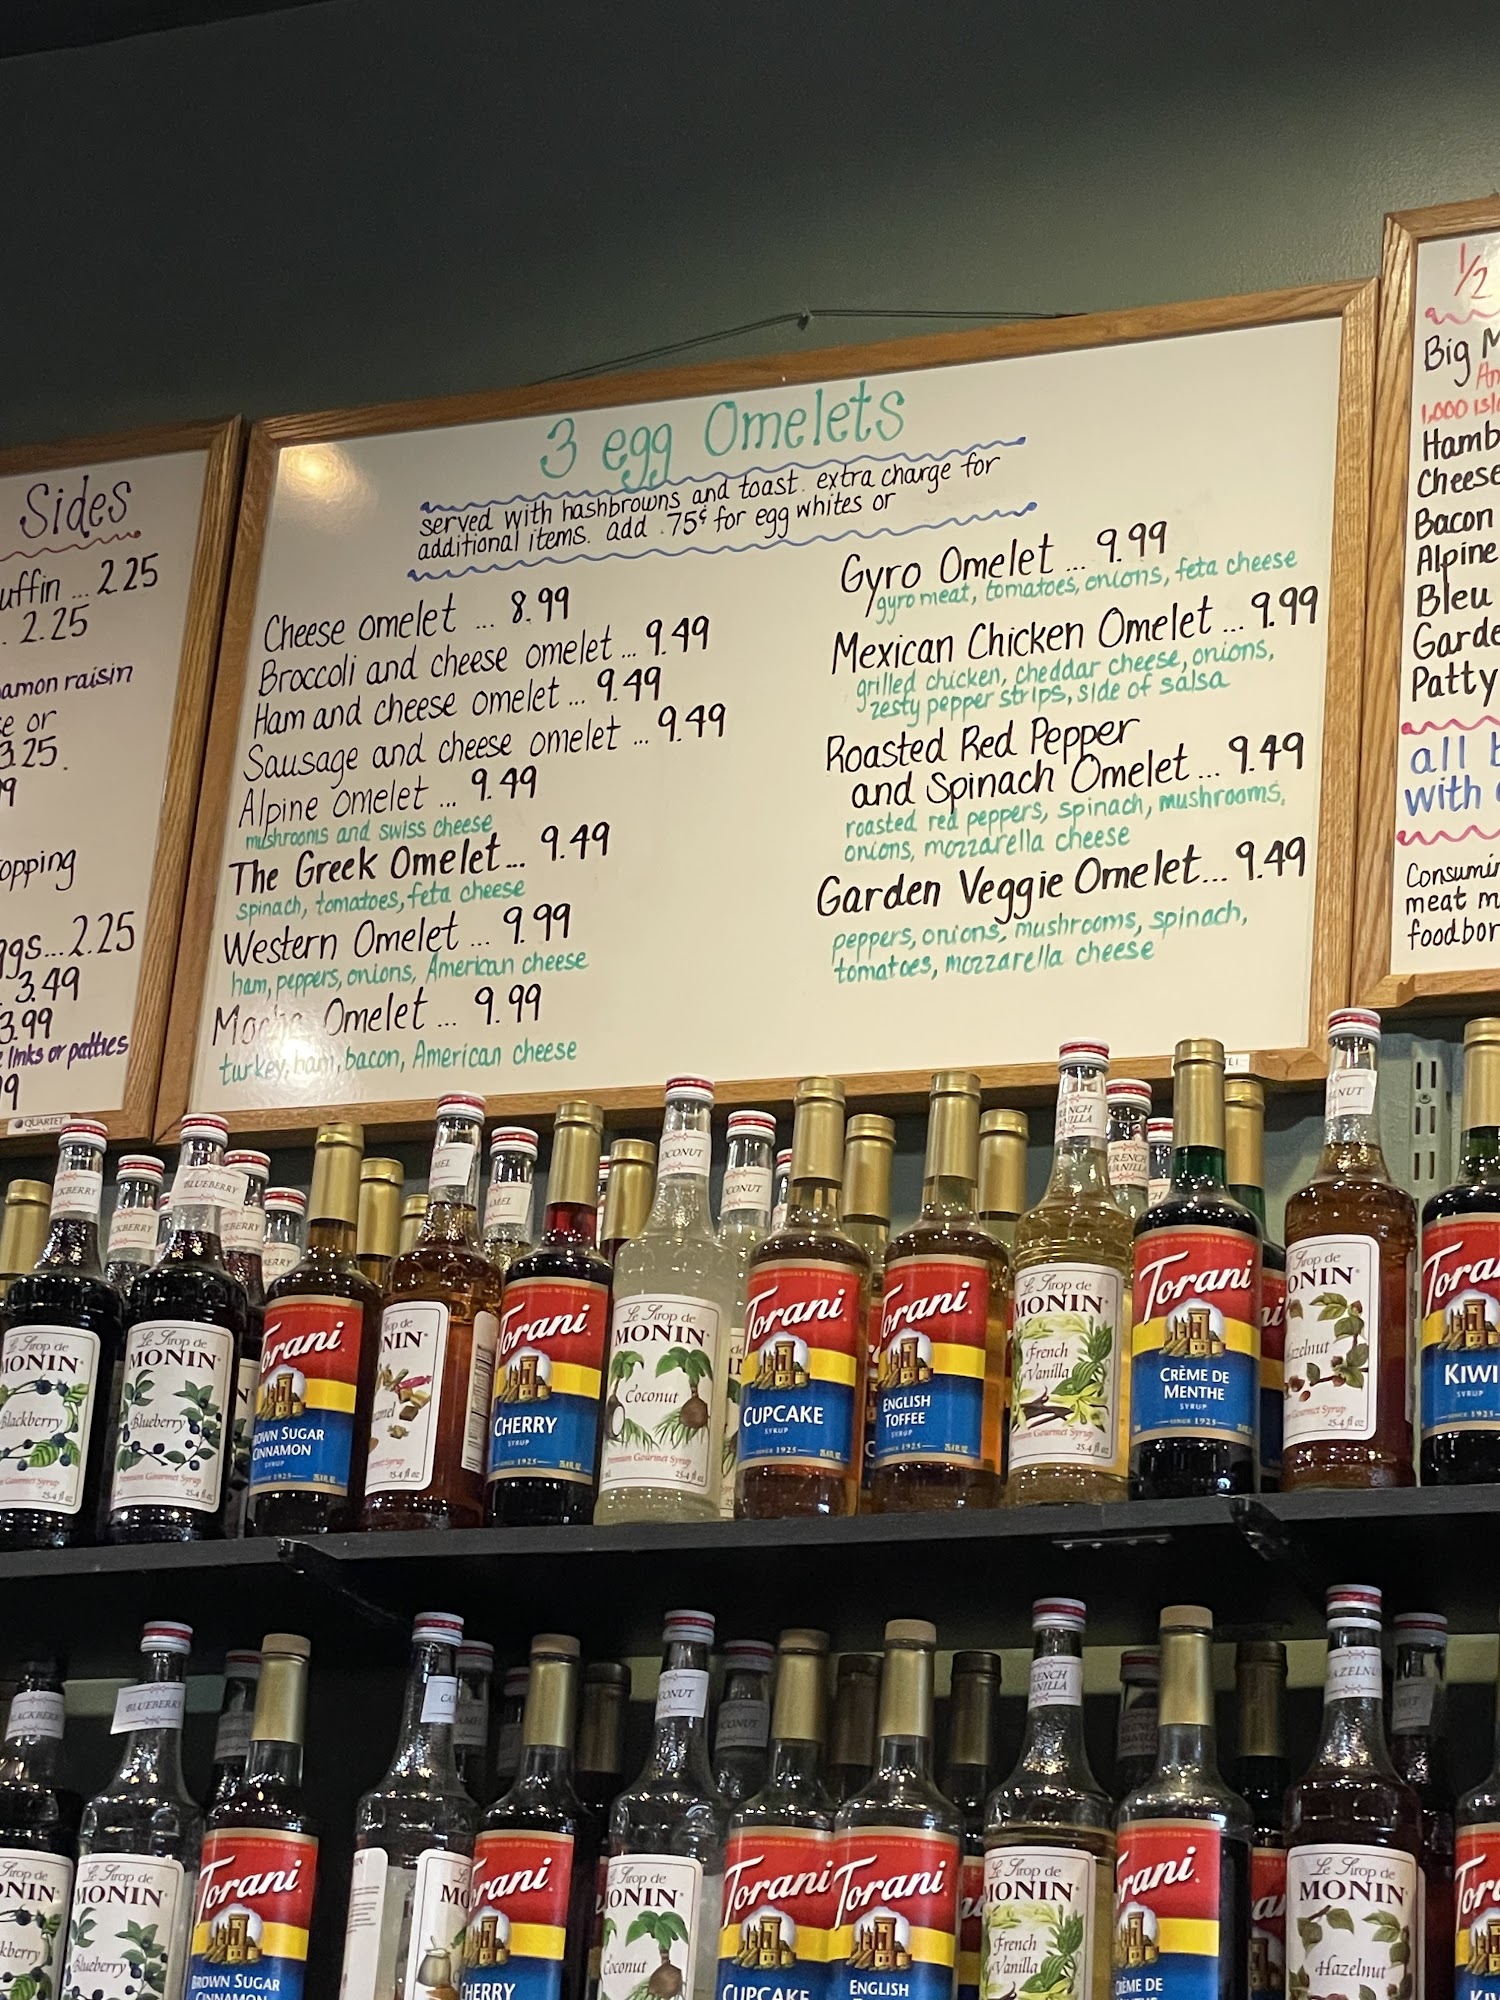 Sides
2.25
2.25
raisin
or
3.25
3.49
3.99
links or patties
QUARTET
3 egg Omelets
served with hashbrowns and toast. extra charge for
additional items. add .75¢ for egg whites or
Cheese omelet ... 8.99
Broccoli and cheese omelet ... 9.49
Ham and cheese omelet ... 9.49
Sausage and cheese omelet ... 9.49
Alpine omelet ... 9.49
mushrooms and swiss cheese
The Greek Omelet... 9.49
spinach, tomatoes, feta cheese
Western Omelet ... 9.99
ham, peppers, onions, American cheese
Omelet ... 9.99
turkey, ham, bacon, American cheese
Gyro Omelet ... 9.99
gyro meat, tomatoes, onions, feta cheese
Mexican Chicken Omelet ... 9.99
grilled chicken, cheddar cheese, onions,
zesty pepper strips, side of salsa
Roasted Red Pepper
and Spinach Omelet ... 9.49
roasted red peppers, spinach, mushrooms,
onions, mozzarella cheese
Garden Veggie Omelet... 9.49
peppers, onions, mushrooms, spinach,
tomatoes, mozzarella cheese
1/2
Big
1,000
Bacon
Alpine
Bleu
Patty
all
with
meat
BLUEBERRY
Le Sirop de
MONIN
Blackberry
Le Sirop de
MONIN
Blueberry
Premium Gourmet Syrup
25.4 fl oz
Torani
CINNAMON
SYRUP
Torani
CHERRY
SYRUP
SINCE 1925
Le Sirop de
MONIN
Coconut
Premium Gourmet Syrup
25.4 fl oz
Torani
CUPCAKE
SYRUP
SINCE 1925
Torani
ENGLISH
TOFFEE
SYRUP
SINCE 1925
Le Sirop de
MONIN
French
Vanilla
25.4 fl oz
Torani
CRÈME DE
MENTHE
SYRUP
SINCE 1925
Gourmet Syrup
25.4 fl oz
KIWI
SYRUP
BLUEBERRY
Le Sirop de
MONIN
Blueberry
Torani
BROWN SUGAR
CINNAMON
Le Sirop de
MONIN
Coconut
Torani
CUPCAKE
Torani
ENGLISH
Le Sirop de
MONIN
French
Vanilla
Le Sirop de
MONIN
Hazelnut